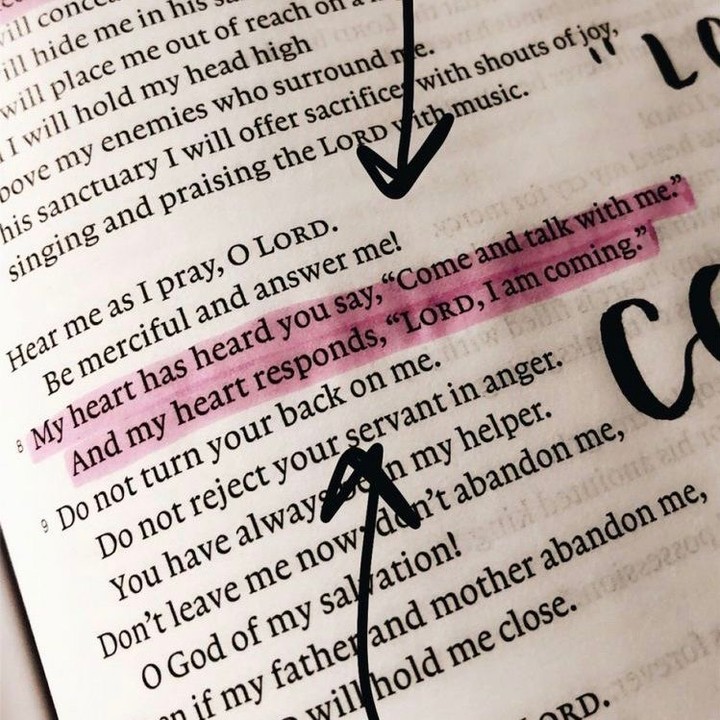 will conceal
ill hide me in his
will place me out of reach on a
I will hold my head high
bove my enemies who surround me.
his sanctuary I will offer sacrifices with shouts of joy,
singing and praising the LORD with music.
Hear me as I pray, O LORD.
Be merciful and answer me!
8 My heart has heard you say, “Come and talk with me.”
And my heart responds, “LORD, I am coming.”
9 Do not turn your back on me.
Do not reject your servant in anger.
You have always been my helper.
Don’t leave me now; don’t abandon me,
O God of my salvation!
n if my father and mother abandon me,
will hold me close.
ORD.
“LO
CO